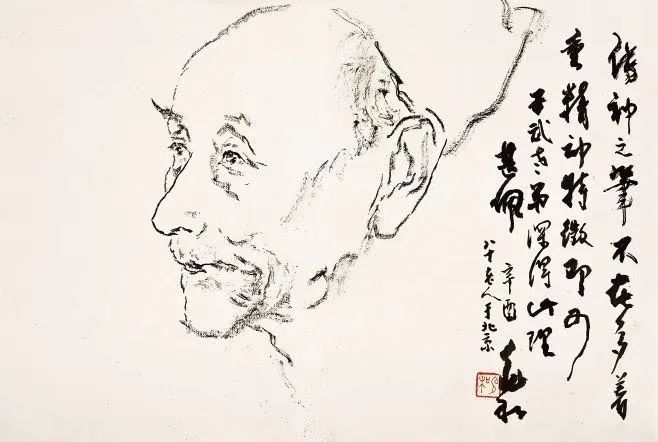 傳神之筆不在多着
重精神特徵即可
子武老弟深得此理
甚佩 辛酉 兆和
八十老人于北京